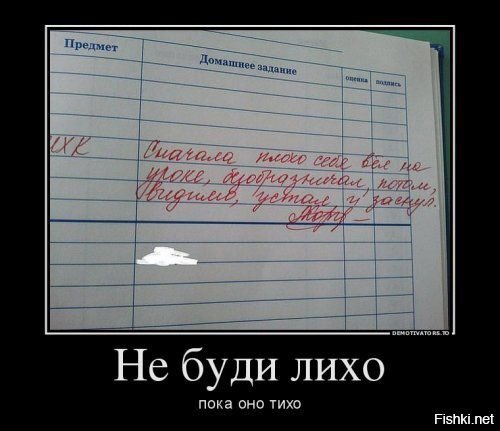 Предмет
Домашнее задание
оценка
подпись
МХК
Сначала плохо себя вел на
уроке, безобразничал, потом,
видимо, устал и заснул.
DEMOTIVATORS.TO
Не буди лихо
пока оно тихо
Fishki.net